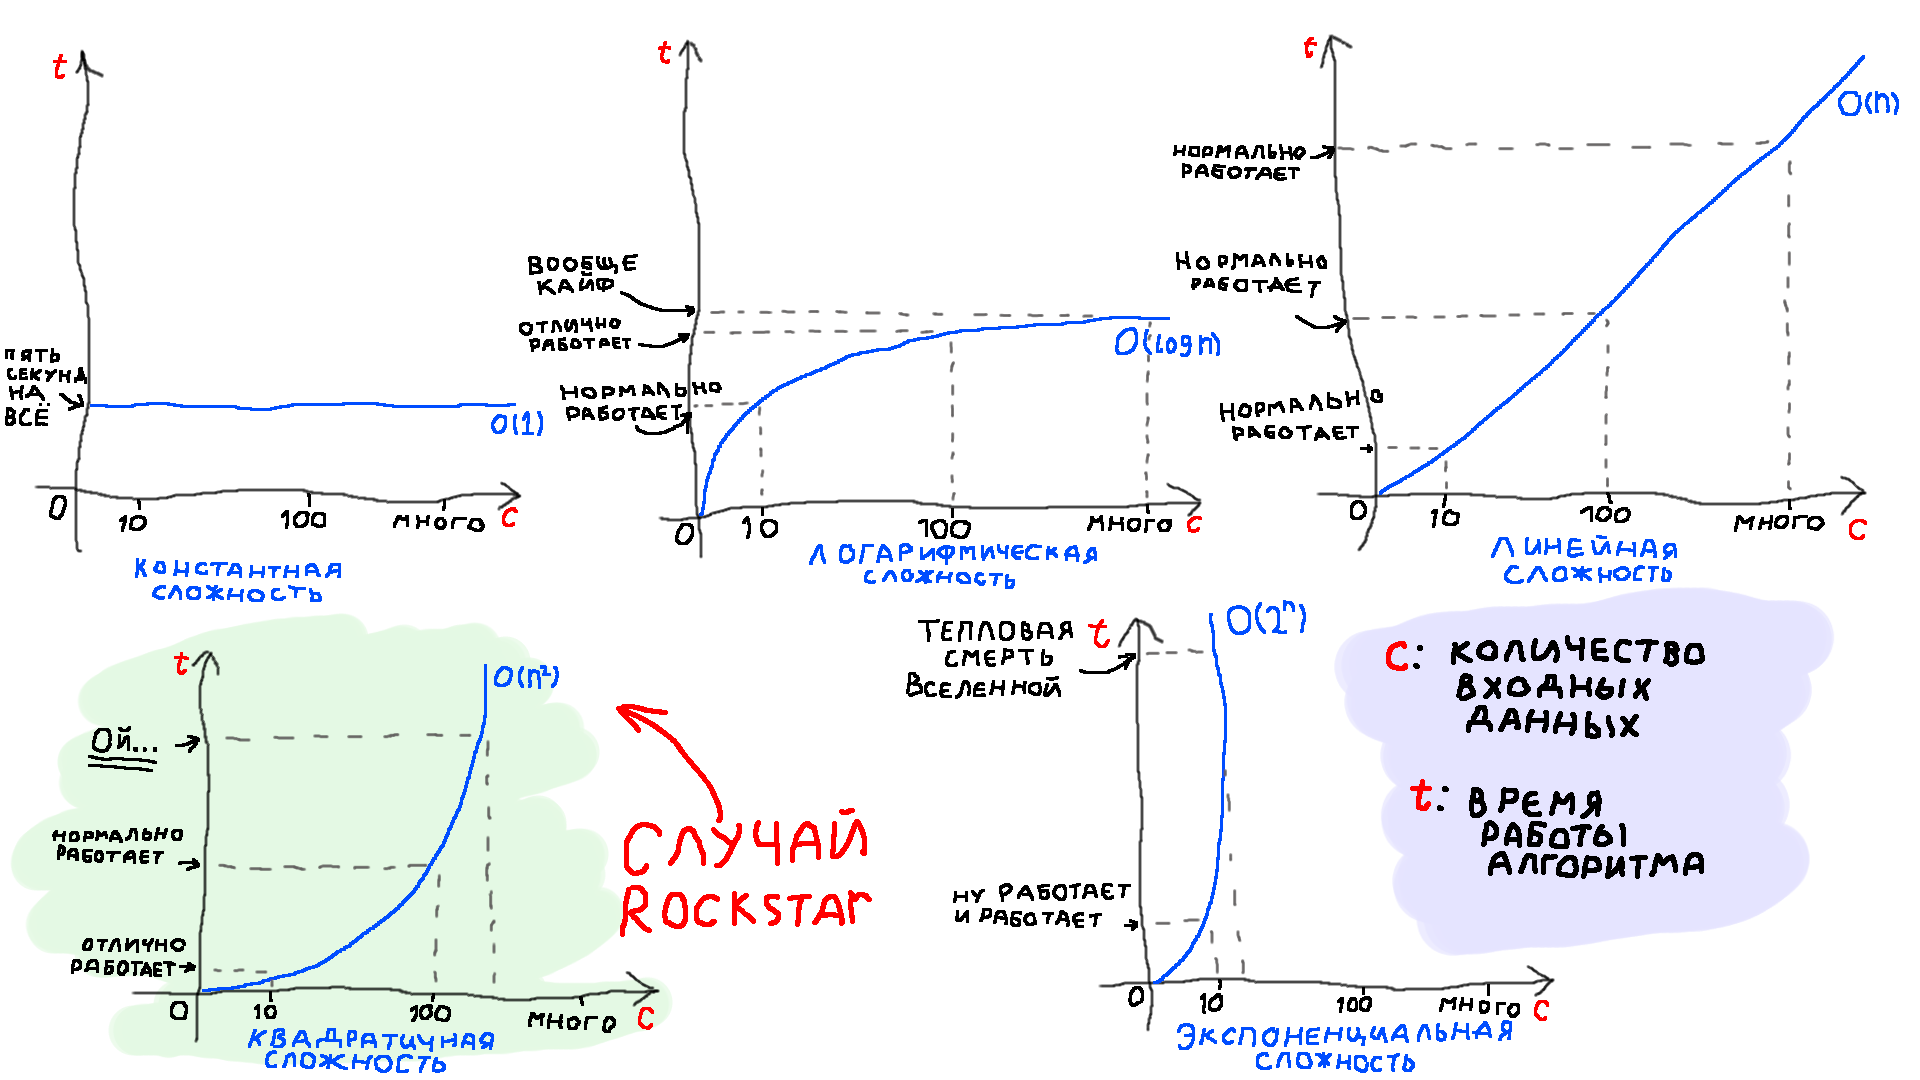 t
ПЯТЬ
СЕКУНД
НА
ВСЁ
O(1)
0
10
100
МНОГО
C
КОНСТАНТНАЯ
СЛОЖНОСТЬ
t
ВООБЩЕ
КАЙФ
ОТЛИЧНО
РАБОТАЕТ
НОРМАЛЬНО
РАБОТАЕТ
O(log n)
0
10
100
МНОГО
C
ЛОГАРИФМИЧЕСКАЯ
СЛОЖНОСТЬ
t
НОРМАЛЬНО
РАБОТАЕТ
НОРМАЛЬНО
РАБОТАЕТ
НОРМАЛЬНО
РАБОТАЕТ
O(n)
0
10
100
МНОГО
C
ЛИНЕЙНАЯ
СЛОЖНОСТЬ
t
ОЙ...
НОРМАЛЬНО
РАБОТАЕТ
ОТЛИЧНО
РАБОТАЕТ
O(n²)
0
10
100
МНОГО
C
КВАДРАТИЧНАЯ
СЛОЖНОСТЬ
СЛУЧАЙ
ROCKSTAR
t
ТЕПЛОВАЯ
СМЕРТЬ
ВСЕЛЕННОЙ
НУ РАБОТАЕТ
И РАБОТАЕТ
O(2ⁿ)
0
10
100
МНОГО
C
ЭКСПОНЕНЦИАЛЬНАЯ
СЛОЖНОСТЬ
C: КОЛИЧЕСТВО
ВХОДНЫХ
ДАННЫХ
t: ВРЕМЯ
РАБОТЫ
АЛГОРИТМА